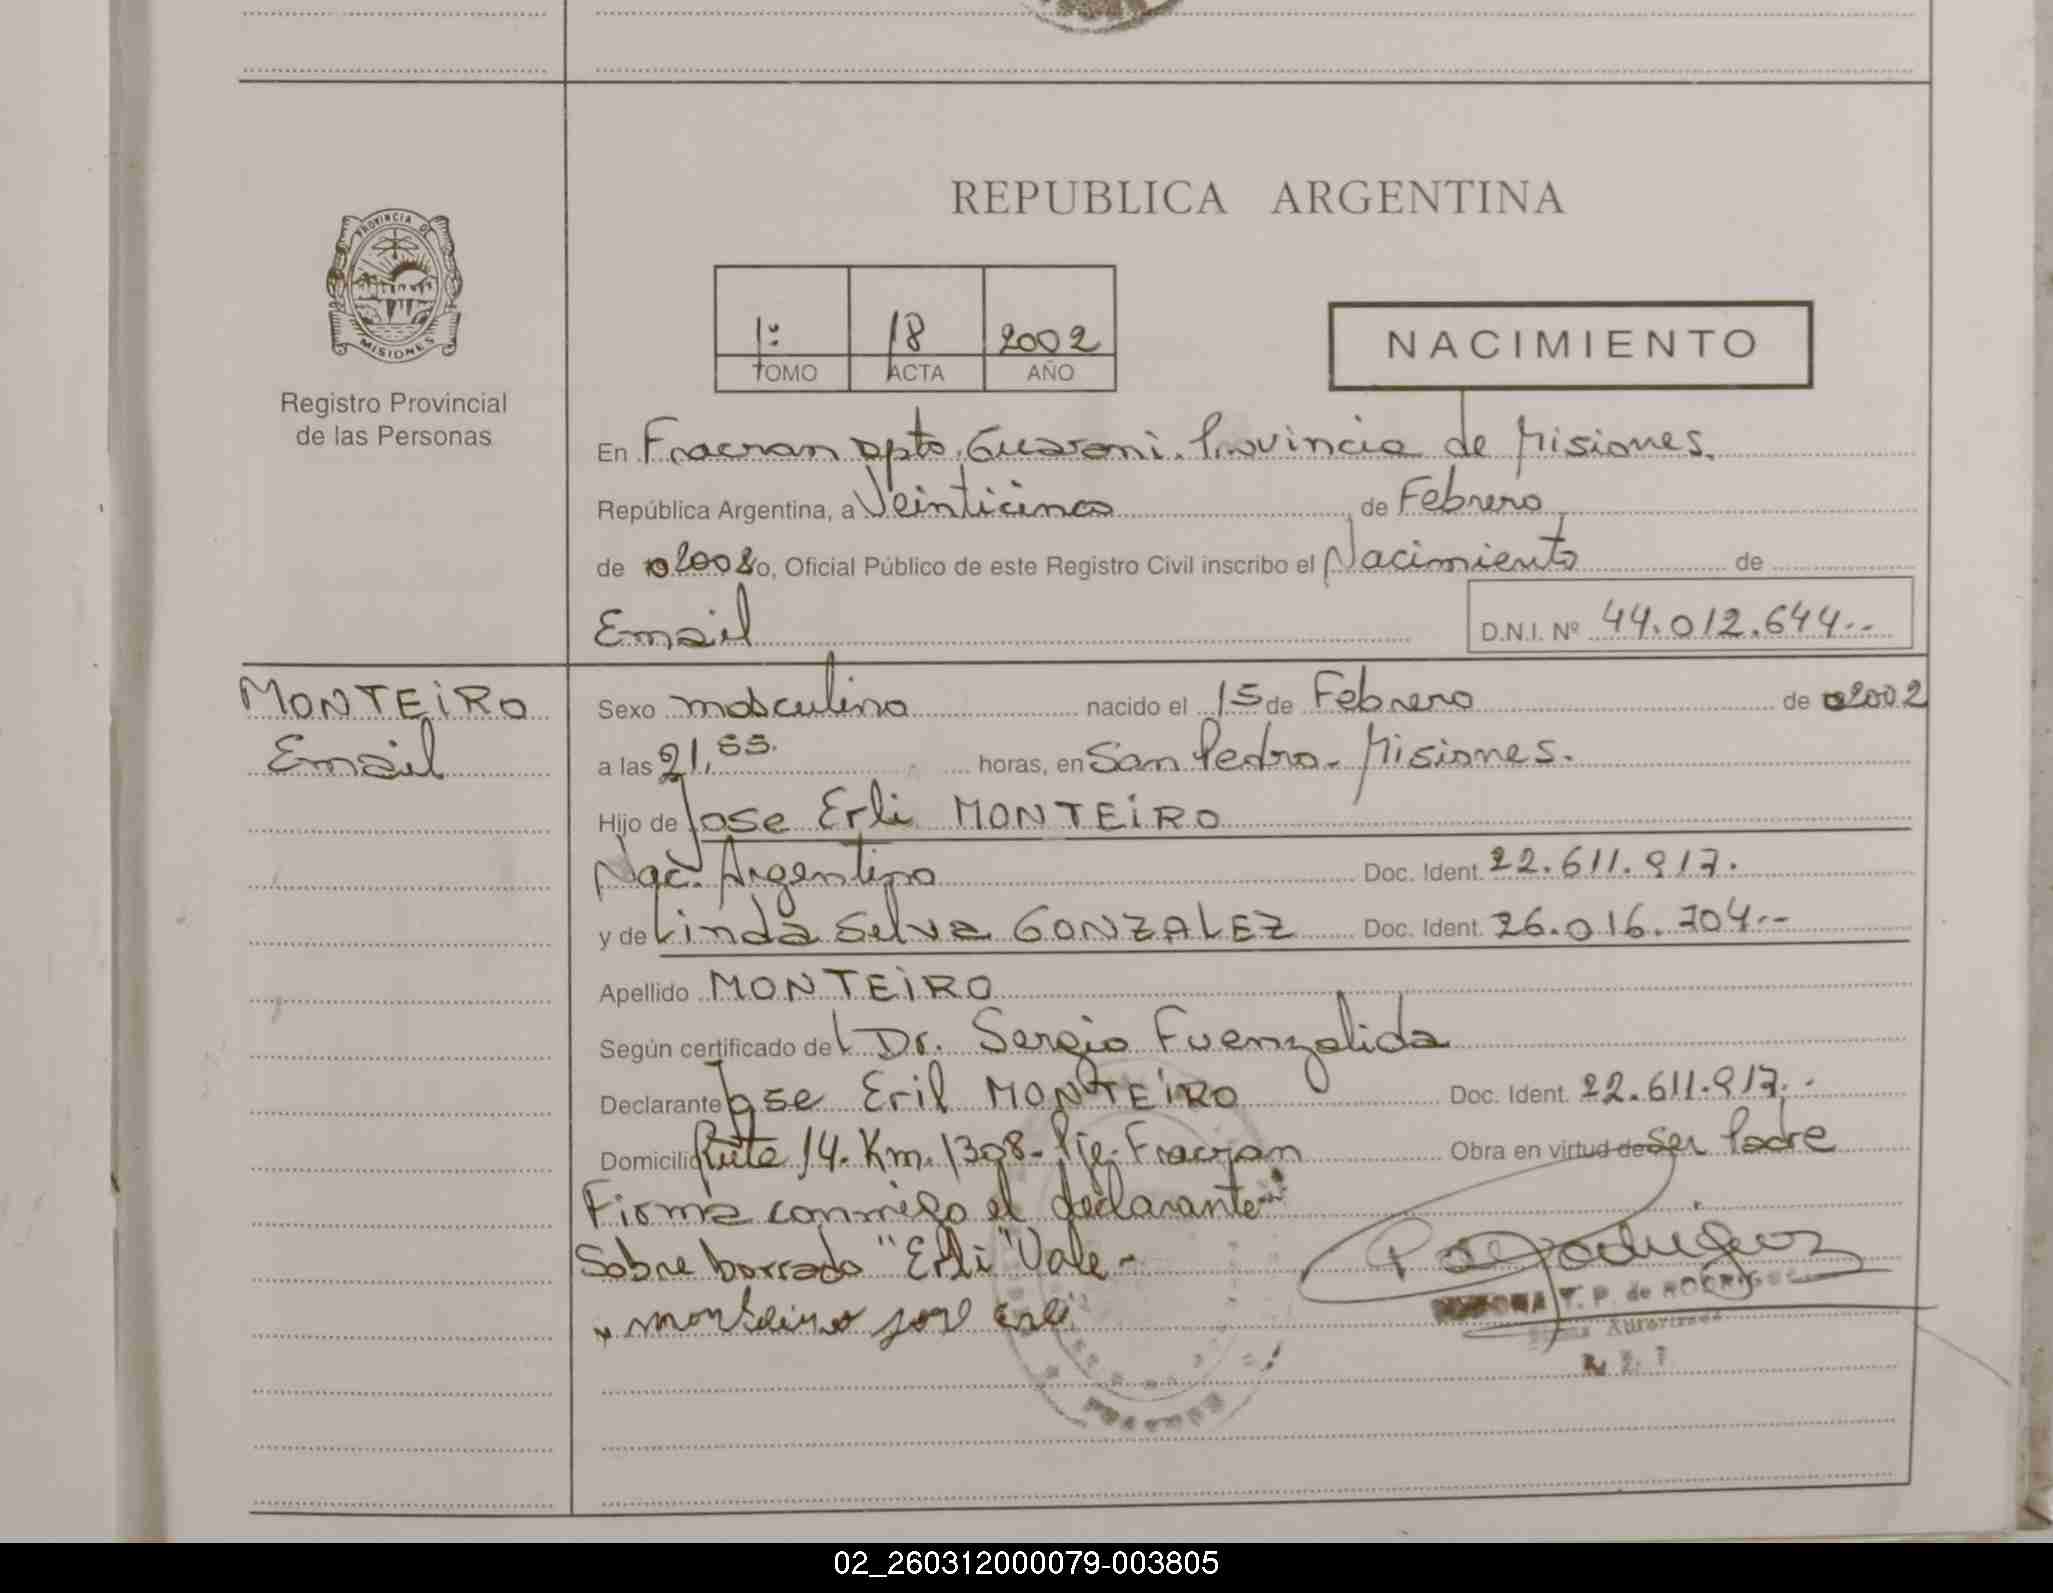 REPUBLICA ARGENTINA
PROVINCIA DE
MISIONES
Registro Provincial
de las Personas
1º 18 2002
TOMO ACTA AÑO
NACIMIENTO
En Fracran Dpto. Guarani. Provincia de Misiones.
República Argentina, a Veinticinco de Febrero
de 2002 yo, Oficial Público de este Registro Civil inscribo el Nacimiento de
Email
D.N.I. Nº 44.012.644.--
MONTEIRO
Email
Sexo masculino nacido el 15 de Febrero de 2002
a las 21,55. horas, en San Pedro - Misiones.
Hijo de Jose Erli MONTEIRO
Nac. Argentino Doc. Ident. 22.611.917.
y de Linda Selva GONZALEZ Doc. Ident. 26.016.704.--
Apellido MONTEIRO
Según certificado del Dr. Sergio Fuenzalida
Declarante Jose Eril MONTEIRO Doc. Ident. 22.611.917.-
Domicilio Ruta 14. Km. 1308 - Pje. Fracran Obra en virtud de Ser Padre
Firma conmigo el declarante
Sobre borrado "Erli" Vale -
monteiro jose erli
T. P. de RODRIGUEZ
02_260312000079-003805